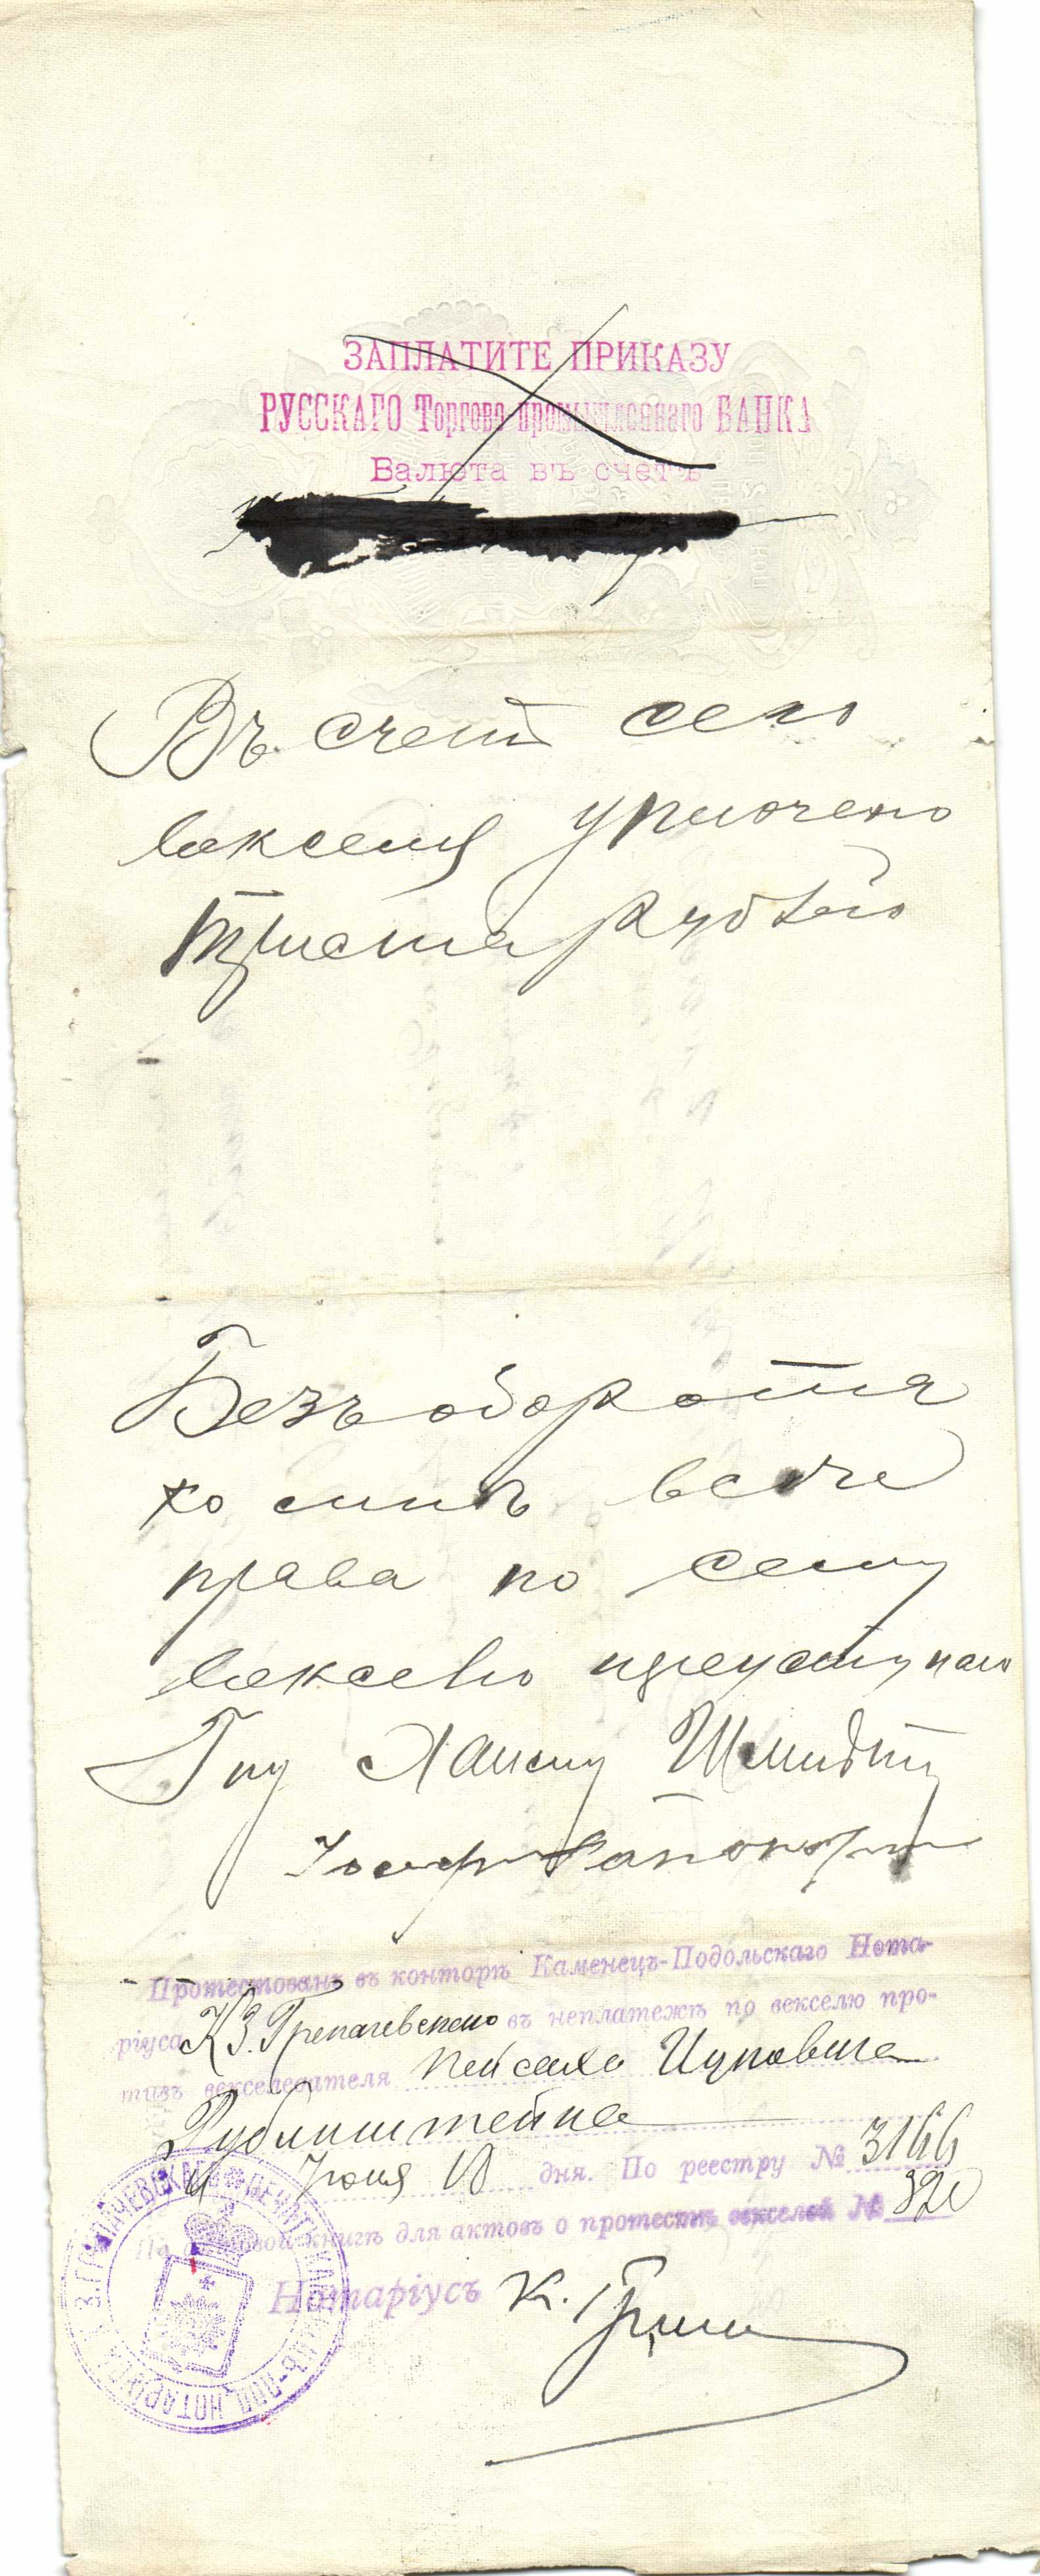 ЗАПЛАТИТЕ ПРИКАЗУ
РУССКАГО Торгово промышленнаго БАНКА
Валюта въ счетъ
Въ счетъ сего
векселя уплочено
триста рублей
Безъ оборота
на меня все
права по сему
векселю переуступаю
Гну Хаиму Шмидту
Іосифъ Рапопортъ
Протестованъ въ конторѣ Каменецъ-Подольскаго Нота-
ріуса К. З. Грепачевскаго въ неплатежѣ по векселю про-
тивъ векселедателя Пейсаха Ицковича
Рубинштейна
Іюня 10 дня. По реестру № 3166
По актовой книгѣ для актовъ о протестѣ векселей № 320
Нотаріусъ К.